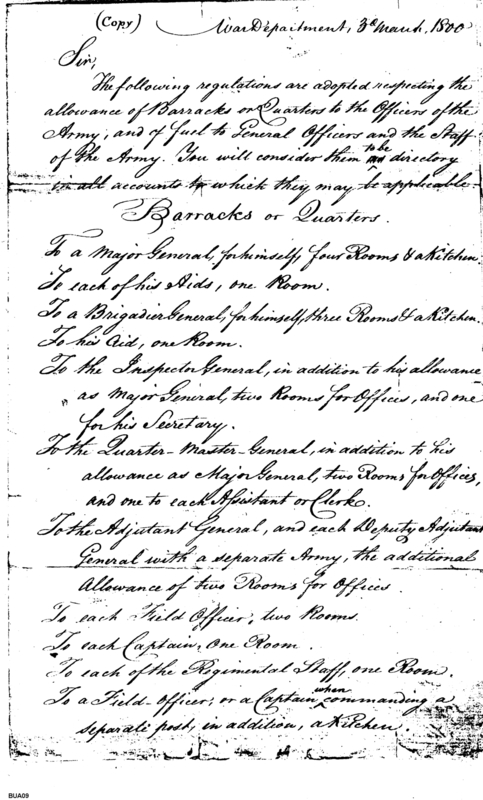 (Copy) War Department, 3d March, 1800
Sir,
The following regulations are adopted respecting the
allowance of Barracks or Quarters to the Officers of the
Army, and of fuel to General Officers and the Staff
of the Army. You will consider them to be directory
in all accounts to which they may be applicable.
Barracks or Quarters.
To a Major General, for himself, four Rooms & a Kitchen.
To each of his Aids, one Room.
To a Brigadier General, for himself, three Rooms & a Kitchen.
To his Aid, one Room.
To the Inspector General, in addition to his allowance
as Major General, two Rooms for Offices, and one
for his Secretary.
To the Quarter-Master-General, in addition to his
allowance as Major General, two Rooms for Offices,
and one to each Assistant or Clerk.
To the Adjutant General, and each Deputy Adjutant
General with a separate Army, the additional
Allowance of two Rooms for Offices.
To each Field Officer, two Rooms.
To each Captain, One Room.
To each of the Regimental Staff, one Room.
To a Field-Officer, or a Captain when commanding a
separate post, in addition, a Kitchen.
BUA09